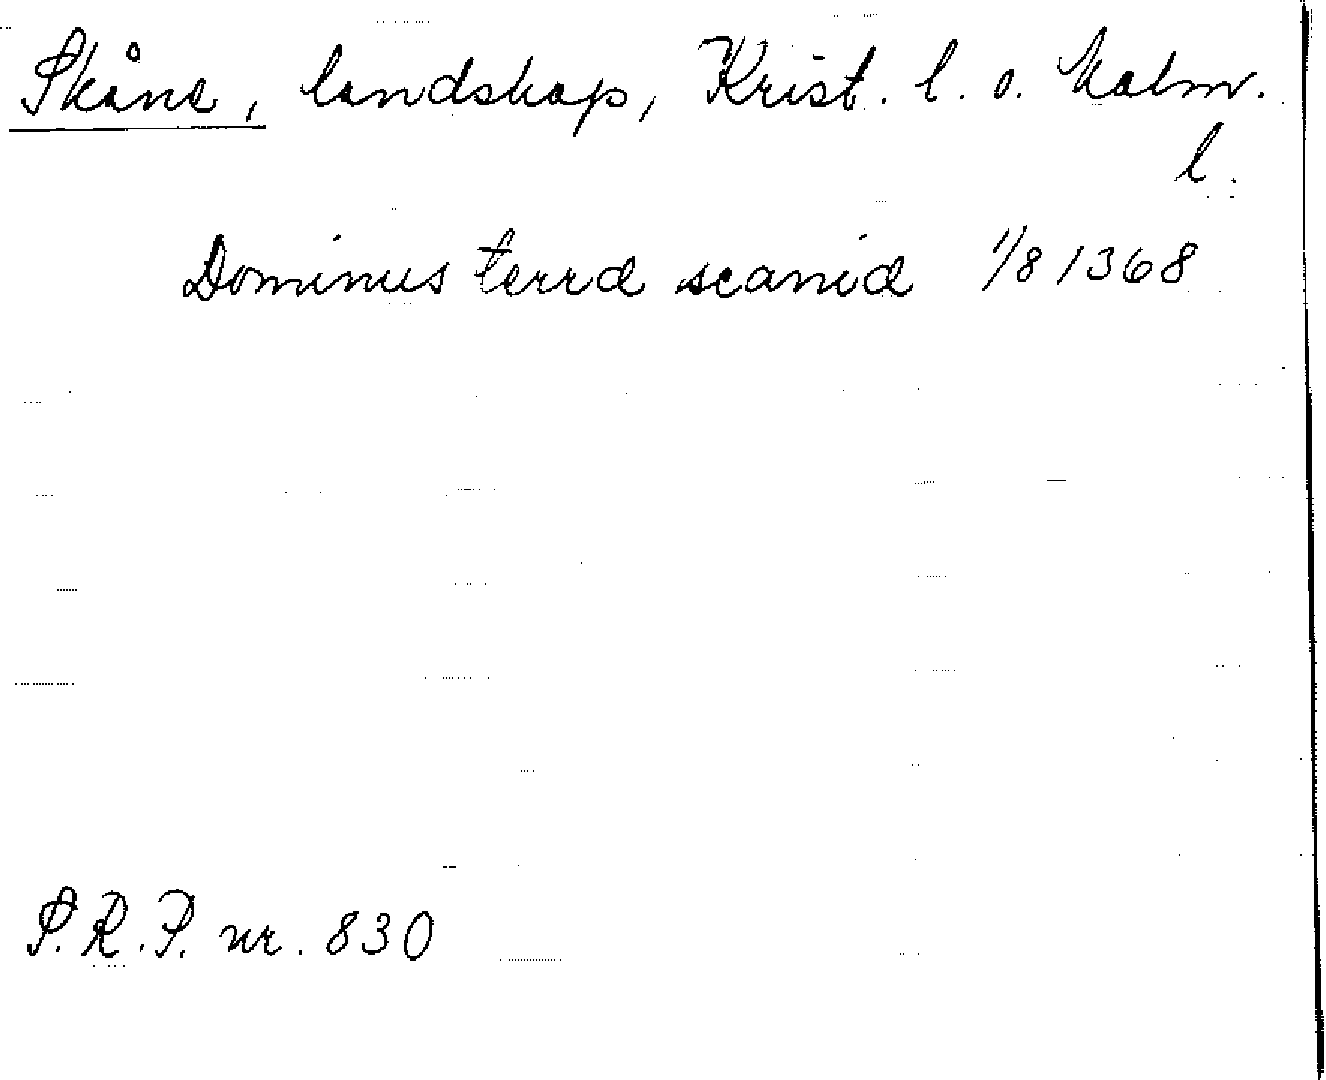 Skåne, landskap, Krist. l. o. Malm.
l.
Dominus terræ scaniæ 1/8 1368
S.R.P. nr. 830